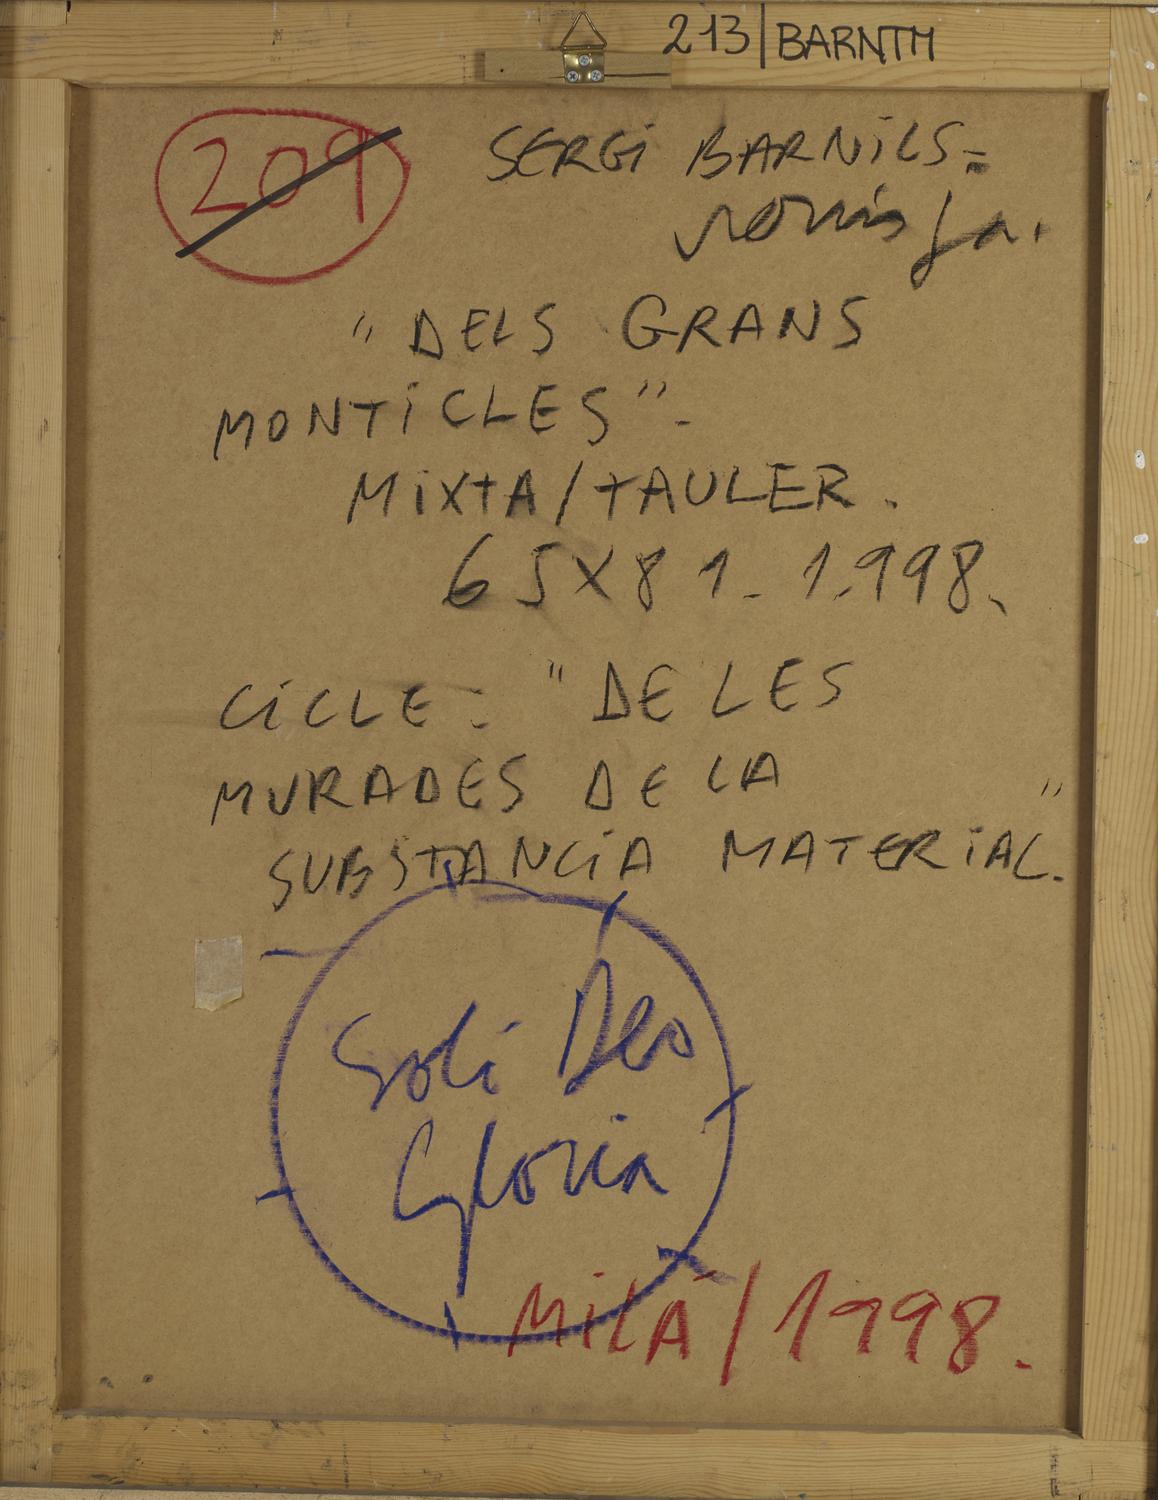 213 | BARNTM
209
SERGI BARNILS-
"DELS GRANS
MONTICLES"-
MIXTA/TAULER.
65X81. 1.998.
CICLE: "DE LES
MURADES DE LA
SUBSTANCIA MATERIAL."
Soli Deo
Gloria
MILÀ/1998.